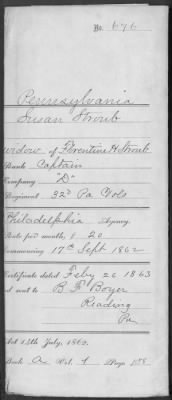 No. 676
Pennsylvania
Susan Stroub
widow of Florentine H Straub
Rank Captain
Company "D"
Regiment 32d Pa Vols
Philadelphia Agency
Rate per month, $ 20
Commencing 17th Sept 1862
Certificate dated Feby 26 1863
and sent to B F Boyer
Reading
Pa
Act 14th July, 1862.
Book A Vol. 1 Page